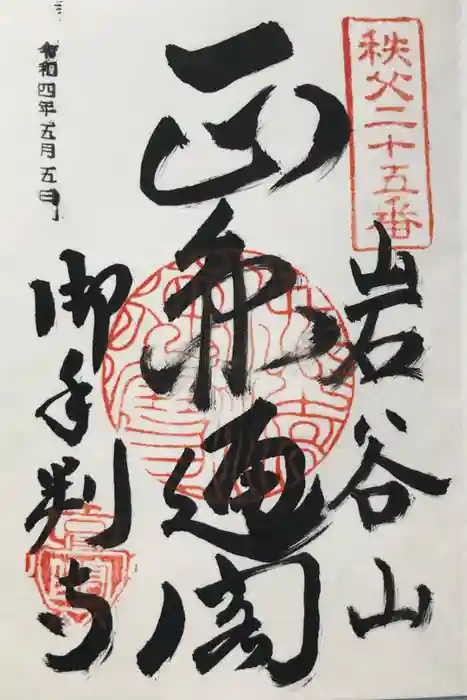 秩父二十五番
岩谷山
正 閣
御手判寺
令和四年五月五日